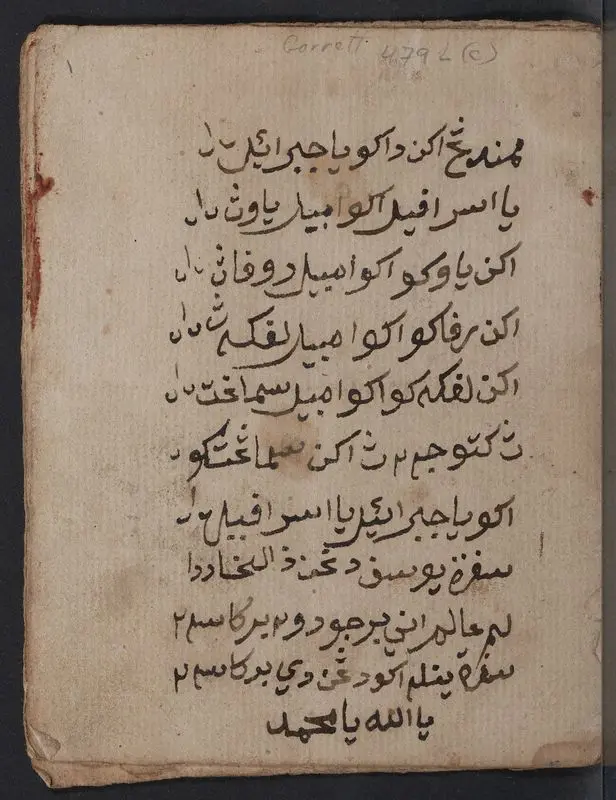 Garrett 479 L (c)
ممندڠ اكن داكو يا جبرائيل
يا اسرافيل اكو امبيل باوث
اكن باوكو اكو امبيل روفاث
اكن رفاكو اكو امبيل لڠكه ث
اكن لڠكه كو اكو امبيل سماڠت
ث كتوجم٢ ث اكن سماڠتكو
اكو يا جبرائيل يا اسرافيل
سفرة يوسف دڠن ذاليخا ددا
لم عالم اني برجودو٢ بركاسه٢
سفرة اكو دڠن دي بركاسه٢
يا الله يا محمد